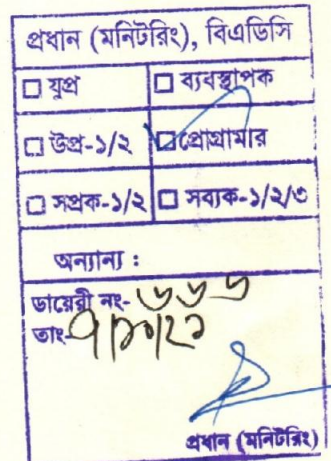 প্রধান (মনিটরিং), বিএডিসি
□ যুপ্র □ ব্যবস্থাপক
□ উপ্র-১/২ □ প্রোগ্রামার
□ সপ্রক-১/২ □ সব্যক-১/২/৩
অন্যান্য :
ডায়েরী নং- ৬৬৬
তাং-
প্রধান (মনিটরিং)